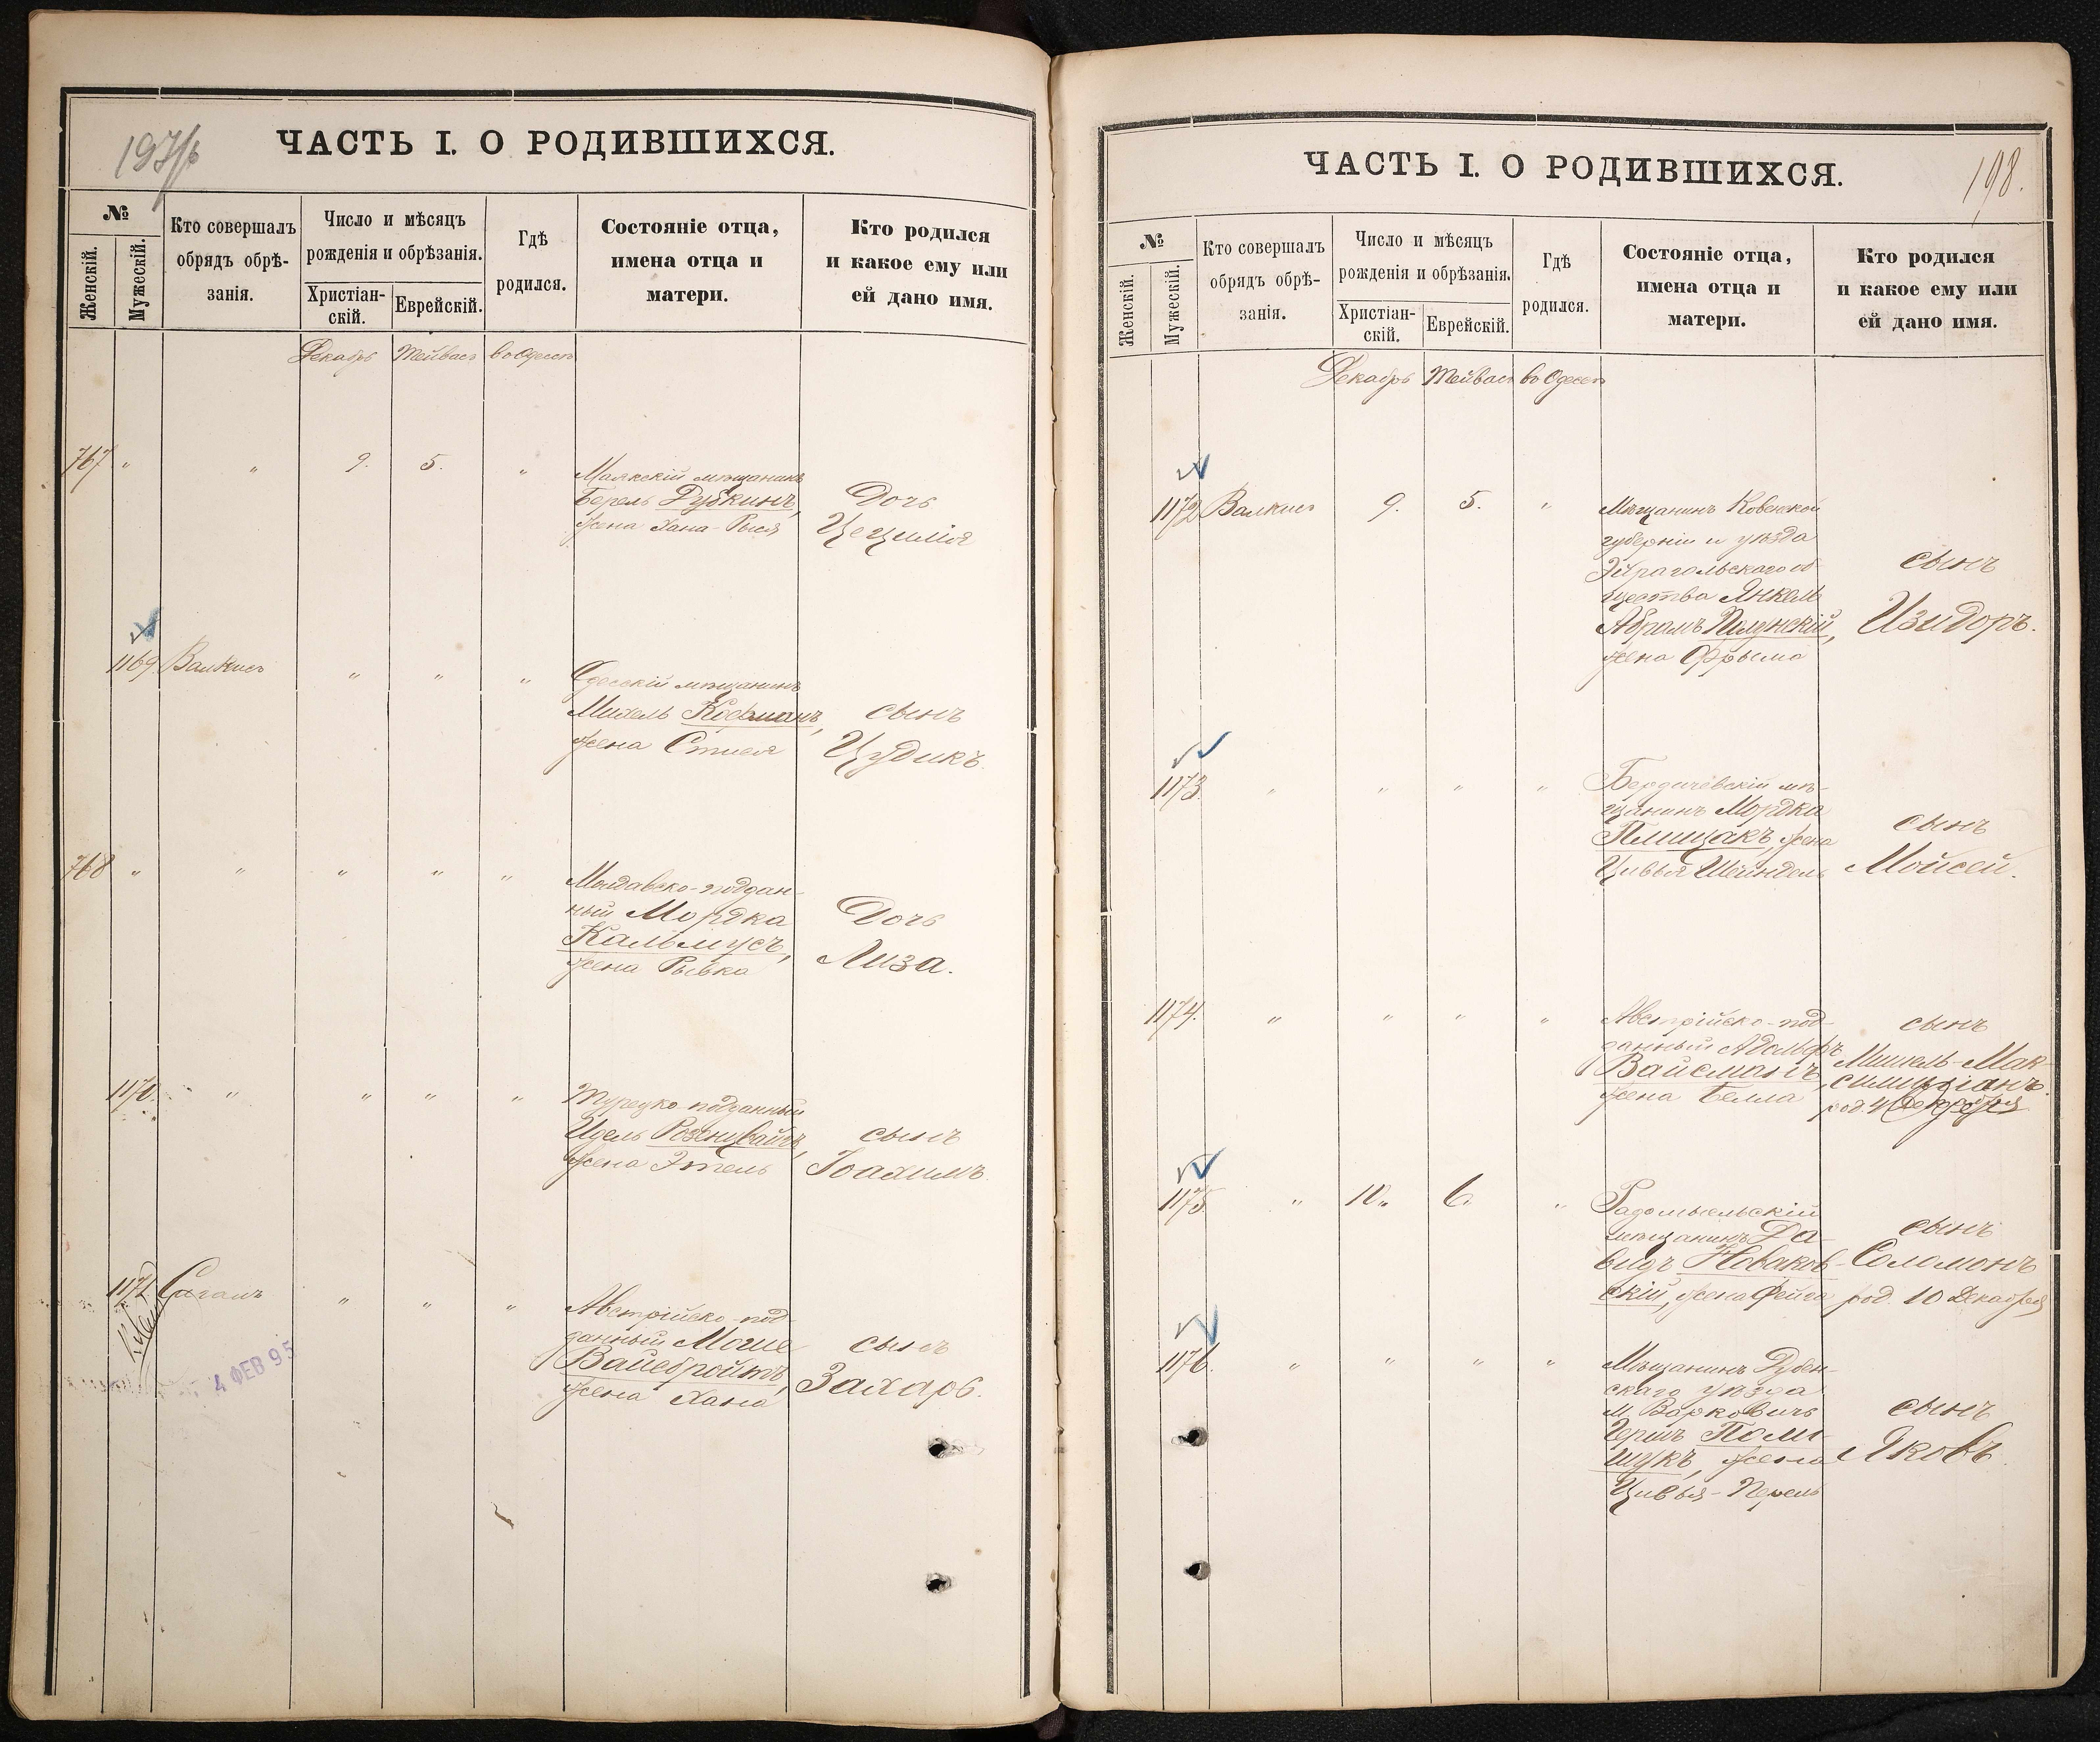 197/б
ЧАСТЬ I. О РОДИВШИХСЯ.
№
Женскій.
Мужескій.
Кто совершалъ
обрядъ обрѣ-
занія.
Число и мѣсяцъ
рожденія и обрѣзанія.
Христіан-
скій.
Еврейскій.
Гдѣ
родился.
Состояніе отца,
имена отца и
матери.
Кто родился
и какое ему или
ей дано имя.
Декабрь Тейвасъ во Одессѣ
767 " " 9. 5. "
Маякскій мѣщанинъ
Берель Рубкинъ,
жена Хана-Рыся
Дочь
Цецилія
1169 Валкисъ " " "
Одесскій мѣщанинъ
Михель Кофманъ,
жена
сынъ
Цудикъ.
768 " " " " "
Молдавско-поддан-
ный Мордка
Кальмусъ,
жена Рывка
Дочь
Лиза.
1170. " " " "
Турецко-подданный
Идель Розенцвайгъ,
жена Этель
сынъ
Іоахимъ.
1171 Саганъ " " "
Австрійско-под-
данный Моше
Вайсбройтъ,
жена Хана
сынъ
Захаръ.
4 ФЕВ 95
198.
ЧАСТЬ I. О РОДИВШИХСЯ.
№
Женскій.
Мужескій.
Кто совершалъ
обрядъ обрѣ-
занія.
Число и мѣсяцъ
рожденія и обрѣзанія.
Христіан-
скій.
Еврейскій.
Гдѣ
родился.
Состояніе отца,
имена отца и
матери.
Кто родился
и какое ему или
ей дано имя.
Декабрь Тейвасъ во Одессѣ
1172 Валкисъ 9. 5. "
Мѣщанинъ Ковенской
губерніи и уѣзда
Эйрагольскаго об-
щества Янкель
Абрамъ
жена Фрыма
сынъ
Изидоръ.
1173. " " " "
Бердичевскій мѣ-
щанинъ Мордка
Плищакъ, жена
Цивья Шейндель
сынъ
Мойсей.
1174. " " " "
Австрійско-под-
данный Адольфъ
Вайсманъ,
жена Белла
сынъ
Мишель-Мак-
симиліанъ.
род. 4 Декабря
1175. " 10. 6. "
Радомысльскій
мѣщанинъ Да-
видъ Новаков-
скій, жена Фейга
сынъ
Соломонъ
род. 10 Декабря
1176. " " " "
Мѣщанинъ Дубен-
скаго уѣзда
м. Варковичъ
Гершъ Поли-
щукъ, жена
Цивья-Перель
сынъ
Яковъ.